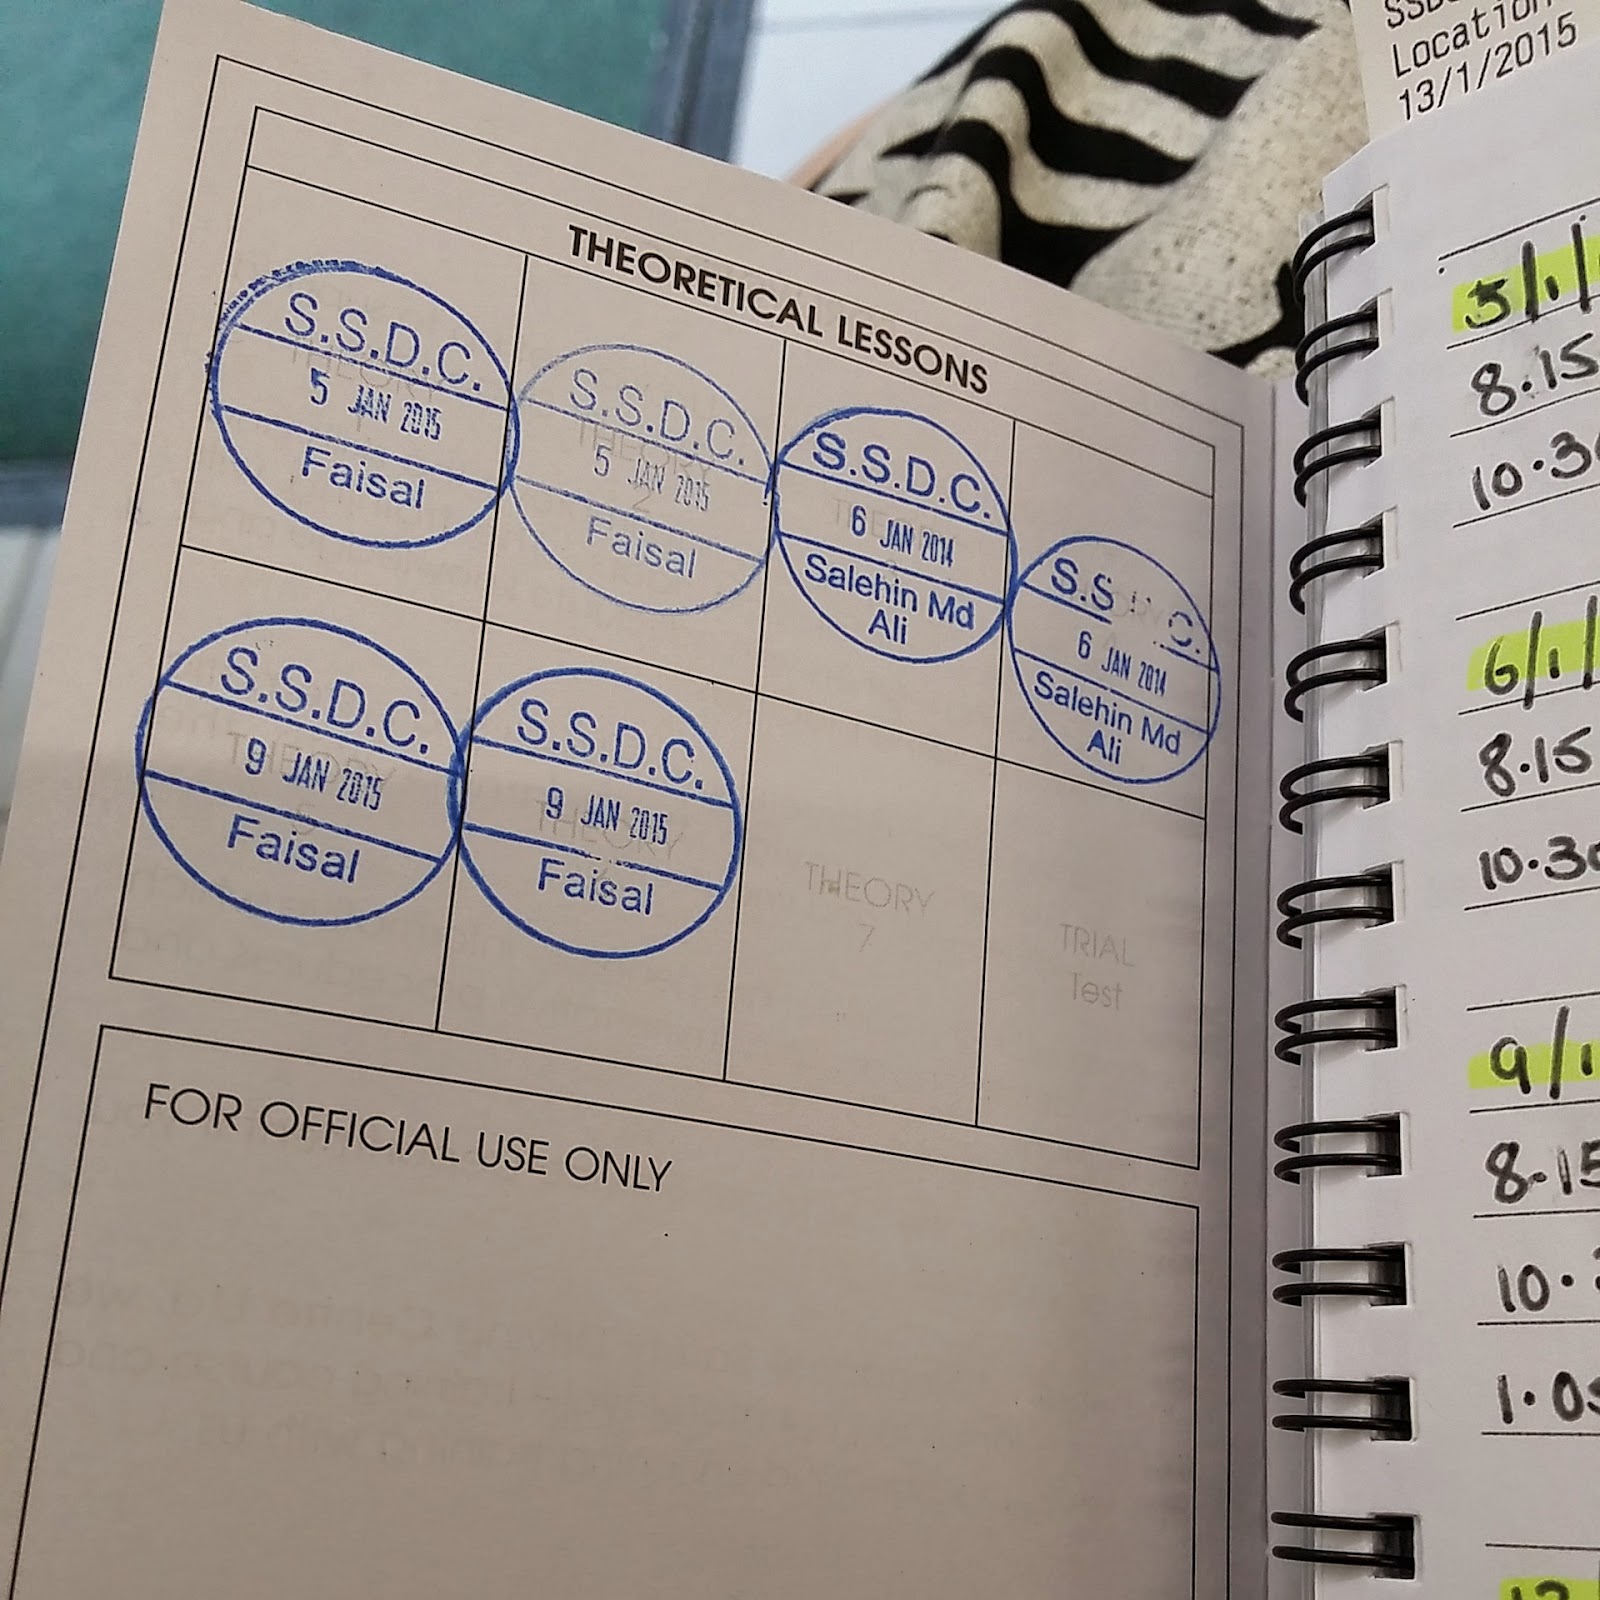 THEORETICAL LESSONS
S.S.D.C.
5 JAN 2015
Faisal
S.S.D.C.
THEORY
2
5 JAN 2015
Faisal
S.S.D.C.
6 JAN 2014
Salehin Md
Ali
S.S C.
6 JAN 2014
Salehin Md
Ali
S.S.D.C.
THEORY
5
9 JAN 2015
Faisal
S.S.D.C.
THEORY
9 JAN 2015
Faisal
THEORY
7
TRIAL
Test
FOR OFFICIAL USE ONLY
Location
13/1/2015
5/1/
8.15
10.30
6/1/
8.15
10.30
9/1
8.15
10.
1.05